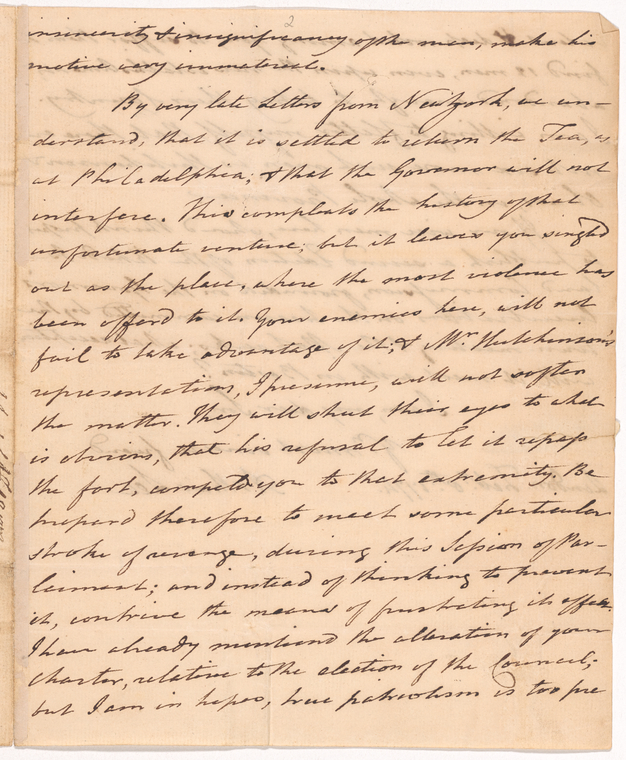 2
insincerity & insignificancy of the man, make his
motive very immaterial.
By very late Letters from New York, we un-
derstand, that it is settled to return the Tea, as
at Philadelphia; & that the Governor will not
interfere. This compleats the history of that
unfortunate venture; but it leaves you singled
out as the place, where the most violence has
been offerd to it. Your enemies here, will not
fail to take advantage of it; & Mr. Hutchinson's
representation, I presume, will not soften
the matter. They will shut their eyes to what
is obvious, that his refusal to let it repass
the fort, compelld you to that extremity. Be
prepard therefore to meet some particular
stroke of revenge, during this Session of Par-
leiment; and instead of thinking to prevent
it, contrive the means of frustrating its effect.
I have already mentiond the alteration of your
Charter, relative to the election of the Council;
but I am in hopes, true patriotism is too pre